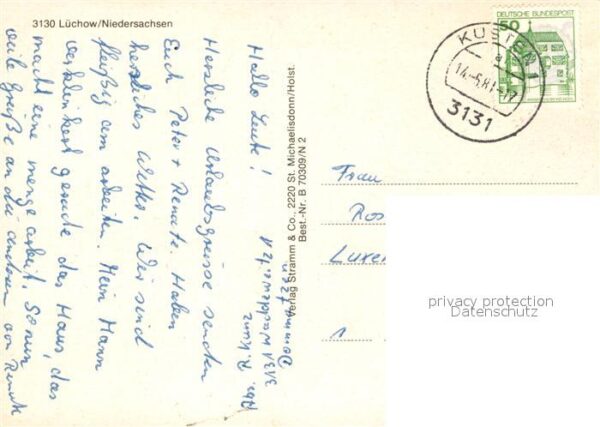 3130 Lüchow/Niedersachsen
Hallo Leute!
Herzliche Urlaubsgrüsse senden
Euch Peter + Renate. Haben
herrliches Wetter. Wir sind
fleißig am arbeiten. Mein Mann
verklinkert gerade das Haus, das
macht eine menge arbeit. So nun
viele Grüße an die anderen von Renate
Abs. P. Kunz
3131
Verlag Stramm & Co., 2220 St. Michaelisdonn/Holst.
Best.-Nr. B 70309/N 2
DEUTSCHE BUNDESPOST
50
KÜSTEN 1
a
14.-5.81-17
3131
Frau
Ros
Luxe
1
privacy protection
Datenschutz